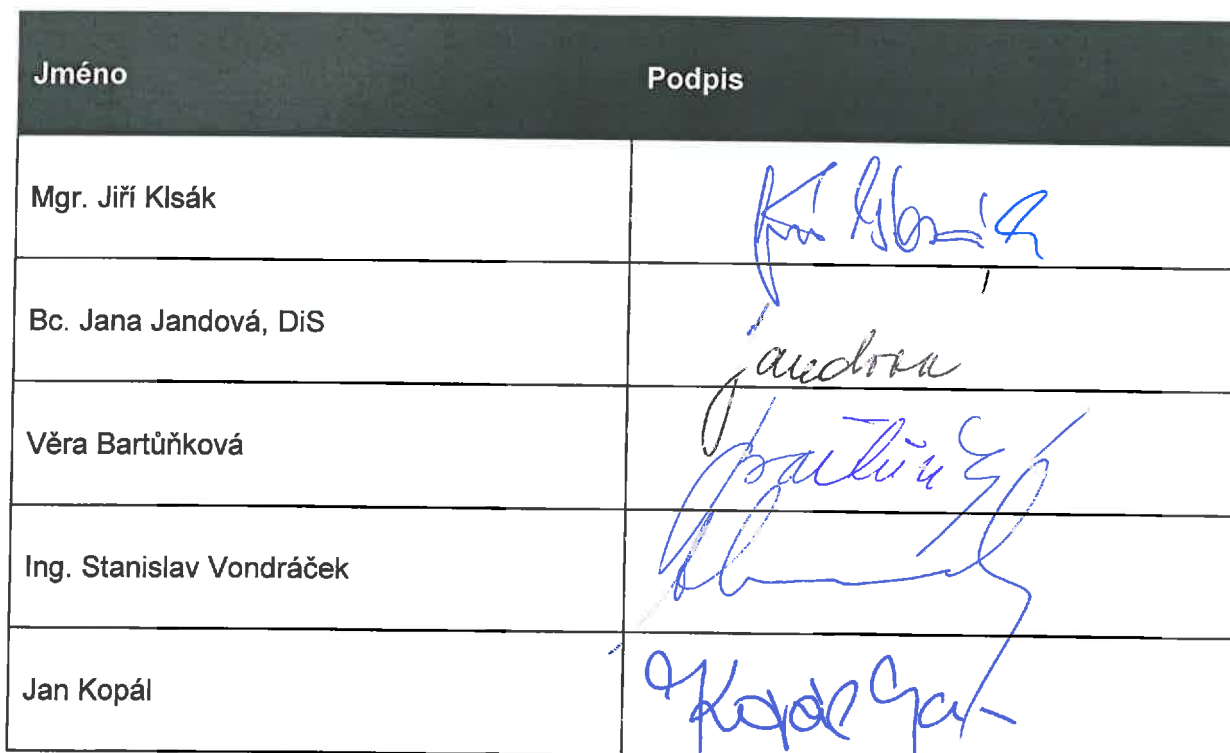 Jméno Podpis
Mgr. Jiří Klsák
Bc. Jana Jandová, DiS
jandova
Věra Bartůňková
Ing. Stanislav Vondráček
Jan Kopál
Kopál Jan